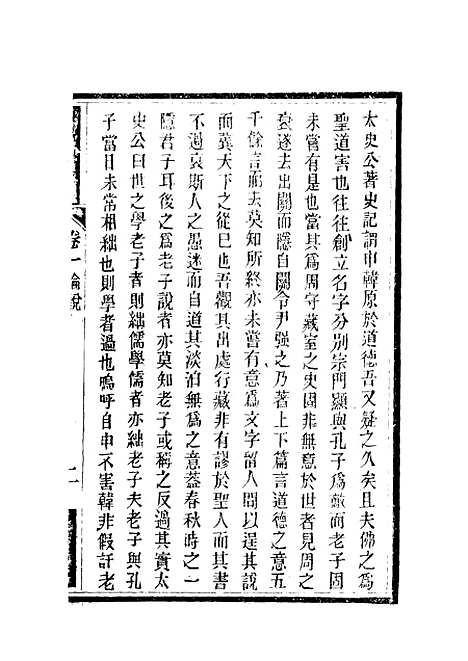 太史公著史記謂申韓原於道德吾又疑之久矣且夫佛之爲
聖道害也往往創立名字分別宗門顯與孔子爲敵而老子固
未嘗有是也當其爲周守藏室之史固非無意於世者見周之
衰遂去出關而隱自關令尹强之乃著上下篇言道德之意五
千餘言而去莫知所終亦未嘗有意爲文字留人間以逞其說
而冀天下之從已也吾觀其出處行藏非有謬於聖人而其書
不過哀斯人之愚迷而自道其淡泊無爲之意葢春秋時之一
隱君子耳後之爲老子說者亦莫知老子或稱之反過其實太
史公曰世之學老子者則絀儒學儒者亦絀老子夫老子與孔
子當日未常相絀也則學者過也嗚呼自申不害韓非假託老
卷一論說
二